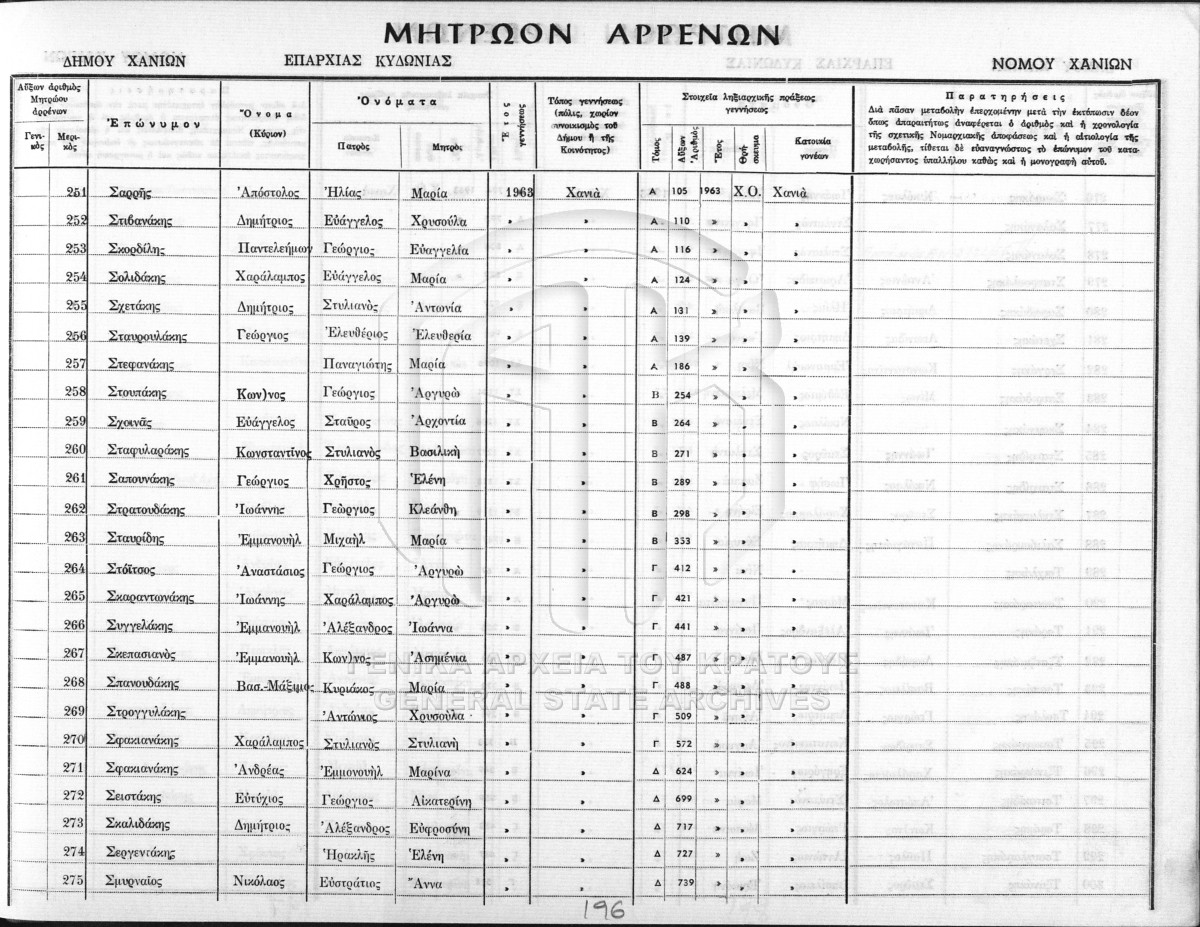 ΜΗΤΡΩΟΝ ΑΡΡΕΝΩΝ
ΔΗΜΟΥ ΧΑΝΙΩΝ ΕΠΑΡΧΙΑΣ ΚΥΔΩΝΙΑΣ ΝΟΜΟΥ ΧΑΝΙΩΝ
Αὔξων ἀριθμὸς Μητρώου ἀρρένων
Γενικὸς Μερικὸς
Ἐπώνυμον
Ὄνομα (Κύριον)
Ὀνόματα
Πατρὸς Μητρὸς
Ἔτος γεννήσεως
Τόπος γεννήσεως (πόλις, χωρίον συνοικισμὸς τοῦ Δήμου ἢ τῆς Κοινότητος)
Στοιχεῖα ληξιαρχικῆς πράξεως γεννήσεως
Τόμος Αὔξων Ἀριθμὸς Ἔτος Θρήσκευμα Κατοικία γονέων
Παρατηρήσεις
Διὰ πᾶσαν μεταβολὴν ἐπερχομένην μετὰ τὴν ἐκτύπωσιν δέον
ὅπως ἀπαραιτήτως ἀναφέρεται ὁ ἀριθμὸς καὶ ἡ χρονολογία
τῆς σχετικῆς Νομαρχιακῆς ἀποφάσεως καὶ ἡ αἰτιολογία τῆς
μεταβολῆς, τίθεται δὲ εὐαναγνώστως τὸ ἐπώνυμον τοῦ κατα-
χωρήσαντος ὑπαλλήλου καθὼς καὶ ἡ μονογραφὴ αὐτοῦ.
251 Σαρρῆς Ἀπόστολος Ἠλίας Μαρία 1963 Χανιὰ Α 105 1963 Χ.Ο. Χανιὰ
252 Στιβανάκης Δημήτριος Εὐάγγελος Χρυσούλα » » Α 110 » » »
253 Σκορδίλης Παντελεήμων Γεώργιος Εὐαγγελία » » Α 116 » » »
254 Σολιδάκης Χαράλαμπος Εὐάγγελος Μαρία » » Α 124 » » »
255 Σχετάκης Δημήτριος Στυλιανὸς Ἀντωνία » » Α 131 » » »
256 Σταυρουλάκης Γεώργιος Ἐλευθέριος Ἐλευθερία » » Α 139 » » »
257 Στεφανάκης Παναγιώτης Μαρία » » Α 186 » » »
258 Στουπάκης Κων)νος Γεώργιος Ἀργυρὼ » » Β 254 » » »
259 Σχοινᾶς Εὐάγγελος Σταῦρος Ἀρχοντία » » Β 264 » » »
260 Σταφυλαράκης Κωνσταντῖνος Στυλιανὸς Βασιλικὴ » » Β 271 » » »
261 Σαπουνάκης Γεώργιος Χρῆστος Ἑλένη » » Β 289 » » »
262 Στρατουδάκης Ἰωάννης Γεώργιος Κλεάνθη » » Β 298 » » »
263 Σταυρίδης Ἐμμανουὴλ Μιχαὴλ Μαρία » » Β 353 » » »
264 Στόϊτσος Ἀναστάσιος Γεώργιος Ἀργυρὼ » » Γ 412 » » »
265 Σκαραντωνάκης Ἰωάννης Χαράλαμπος Ἀργυρὼ » » Γ 421 » » »
266 Συγγελάκης Ἐμμανουὴλ Ἀλέξανδρος Ἰωάννα » » Γ 441 » » »
267 Σκεπασιανὸς Ἐμμανουὴλ Κων)νος Ἀσημένια » » Γ 487 » » »
ΓΕΝΙΚΑ ΑΡΧΕΙΑ ΤΟΥ ΚΡΑΤΟΥΣ
268 Σπανουδάκης Βασ.-Μάξιμος Κυριάκος Μαρία » » Γ 488 » » »
GENERAL STATE ARCHIVES
269 Στρογγυλάκης Ἀντώνιος Χρυσούλα » » Γ 509 » » »
270 Σφακιανάκης Χαράλαμπος Στυλιανὸς Στυλιανὴ » » Γ 572 » » »
271 Σφακιανάκης Ἀνδρέας Ἐμμονουὴλ Μαρίνα » » Δ 624 » » »
272 Σειστάκης Εὐτύχιος Γεώργιος Αἰκατερίνη » » Δ 699 » » »
273 Σκαλιδάκης Δημήτριος Ἀλέξανδρος Εὐφροσύνη » » Δ 717 » » »
274 Σεργεντάκης Ἡρακλῆς Ἑλένη » » Δ 727 » » »
275 Σμυρναῖος Νικόλαος Εὐστράτιος Ἄννα » » Δ 739 » » »
196